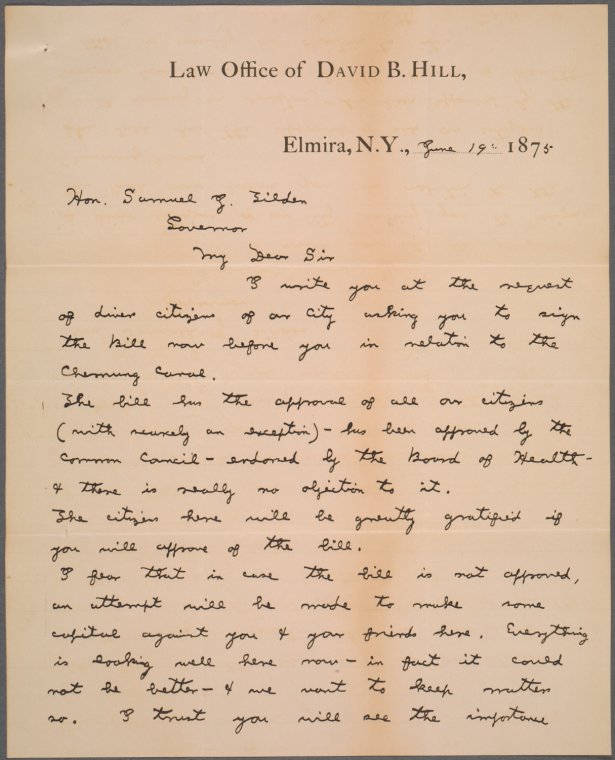 Law Office of David B. Hill,
Elmira, N.Y., June 19th 1875
Hon. Samuel J. Tilden
Governor
My Dear Sir
I write you at the request
of divers citizens of our City asking you to sign
the bill now before you in relation to the
Chemung Canal.
The bill has the approval of all our citizens
(with scarcely an exception) - has been approved by the
Common Council - endorsed by the Board of Health -
& there is really no objection to it.
The citizens here will be greatly gratified if
you will approve of the bill.
I fear that in case the bill is not approved,
an attempt will be made to make some
capital against you & your friends here. Everything
is looking well here now - in fact it could
not be better - & we want to keep matters
so. I trust you will see the importance